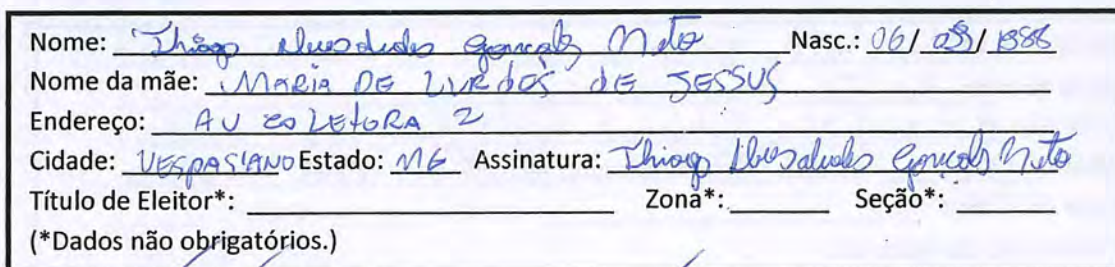 Nome: Thiago Gonçals Neto Nasc.: 06/ 08/ 1988
Nome da mãe: MARIA DE LURDES DE JESSUS
Endereço: AV COLETORA 2
Cidade: VESPASIANO Estado: MG Assinatura: Thiago Gonçals Neto
Título de Eleitor*: Zona*: Seção*:
(*Dados não obrigatórios.)